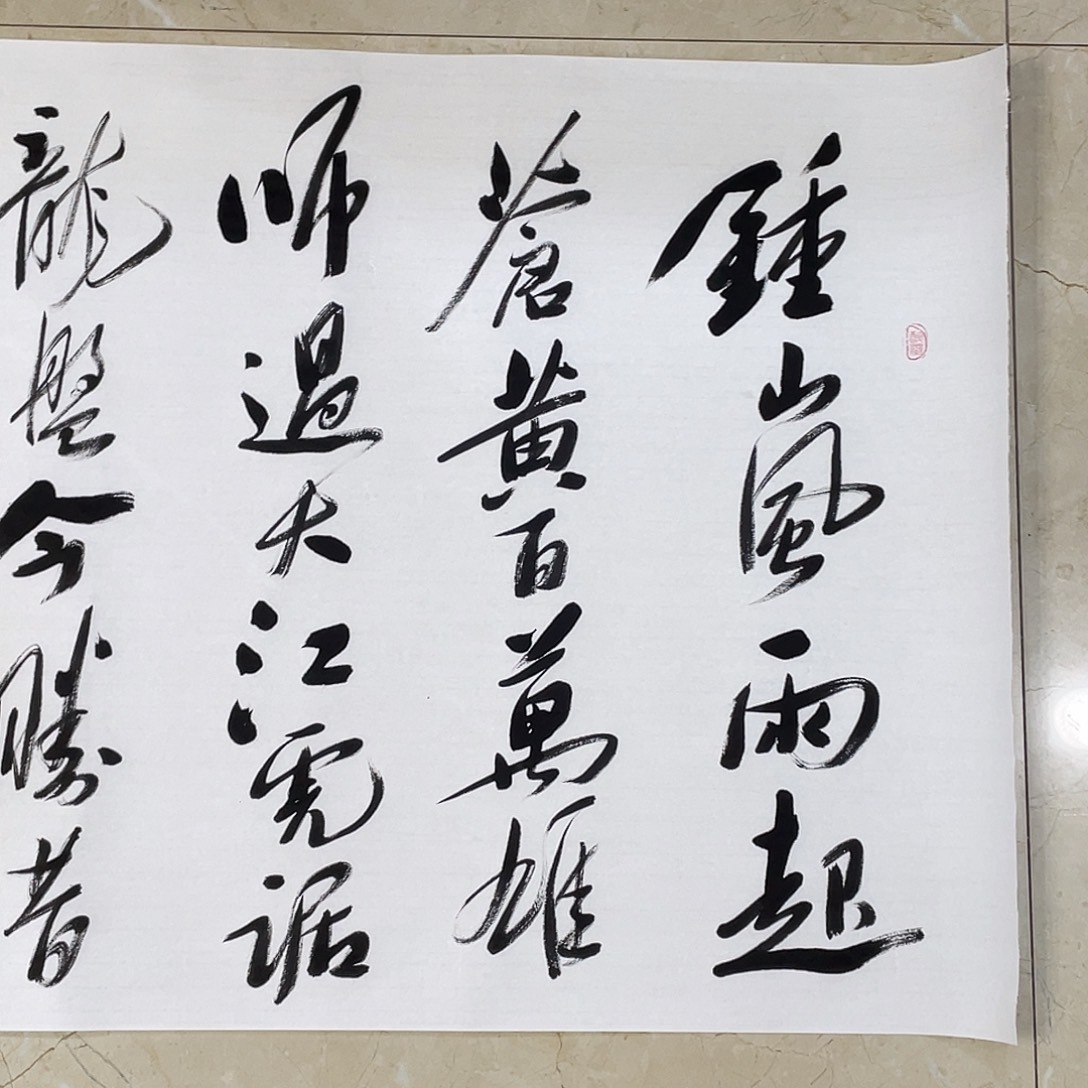 鍾山風雨起
蒼黃百萬雄
師過大江虎踞
龍盤今勝昔